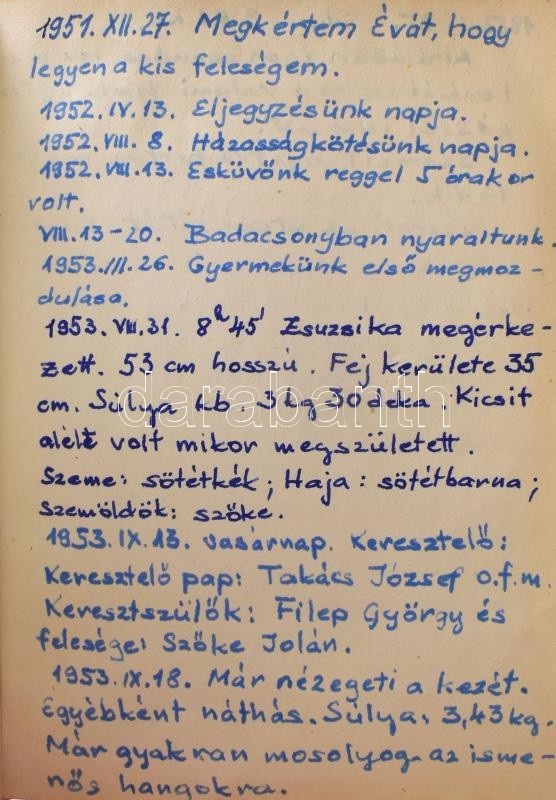 1951. XII. 27. Megkértem Évát, hogy
legyen a kis feleségem.
1952. IV. 13. Eljegyzésünk napja.
1952. VIII. 8. Házasságkötésünk napja.
1952. VIII. 13. Esküvőnk reggel 5 órakor
volt.
VIII. 13-20. Badacsonyban nyaraltunk.
1953. III. 26. Gyermekünk első megmoz-
dulása.
1953. VIII. 31. 8h 45' Zsuzsika megérke-
zett. 53 cm hosszú. Fej kerülete 35
cm. Súlya kb. 3 kg 30 deka. Kicsit
alélt volt mikor megszületett.
Szeme: sötétkék; Haja: sötétbarna;
Szemöldök: szőke.
1953. IX. 13. vasárnap. Keresztelő:
Keresztelő pap: Takács József o.f.m.
Keresztszülők: Filep György és
felesége: Szőke Jolán.
1953. IX. 18. Már nézegeti a kezét.
Egyébként náthás. Súlya: 3,43 kg.
Már gyakran mosolyog az isme-
rős hangokra.
darabanth